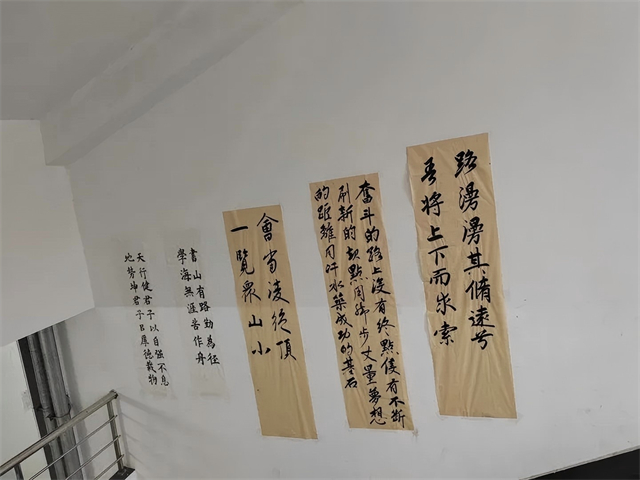 路漫漫其脩遠兮
吾將上下而求索
奮斗的路上沒有終點僅有不斷
刷新的起點用脚步丈量夢想
的距離用汗水築成功的基石
會當凌絕頂
一覽衆山小
書山有路勤爲徑
學海無涯苦作舟
天行健君子以自强不息
地勢坤君子以厚德載物